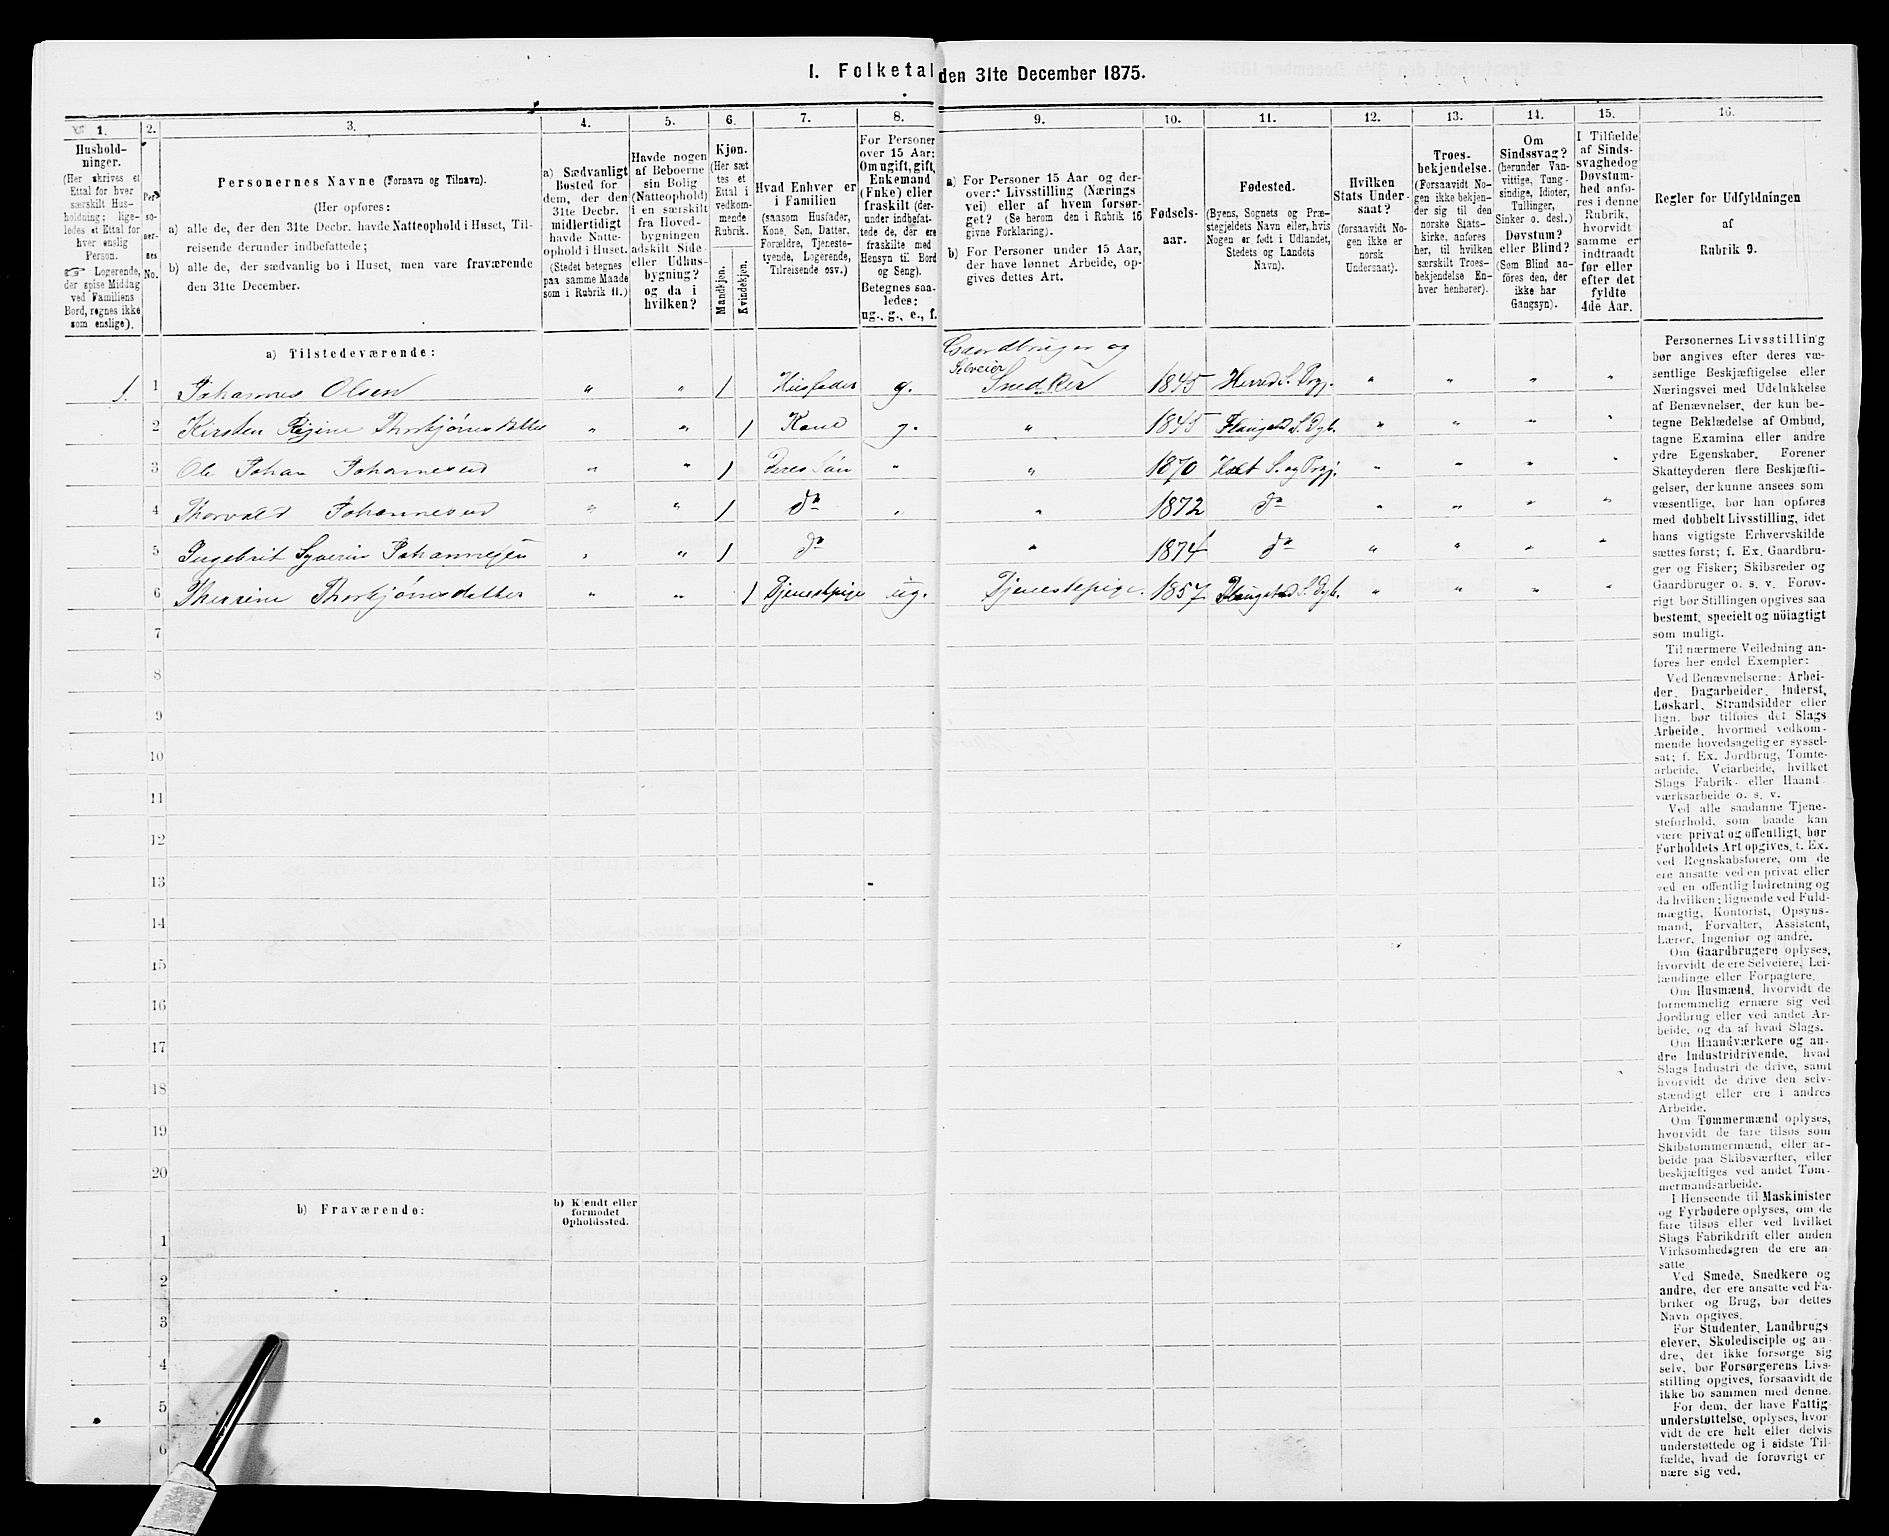 I. Folketal den 31te December 1875.
1. 2. 3. 4. 5. 6. 7. 8. 9. 10. 11. 12. 13. 14. 15. 16.
Hushold-
ninger.
(Her skrives et
Ettal for hver
særskilt Hus-
holdning; lige-
ledes et Ettal for
hver enslig
Person.
☞ Logerende,
der spise Middag
ved Familiens
Bord, regnes ikke
som enslige).
Per-
so-
ner-
nes
No.
Personernes Navne (Fornavn og Tilnavn).
(Her opføres:
a) alle de, der den 31te Decbr. havde Natteophold i Huset, Til-
reisende derunder indbefattede;
b) alle de, der sædvanlig bo i Huset, men vare fraværende
den 31te December.
a) Sædvanligt
Bosted for
dem, der den
31te Decbr.
midlertidigt
havde Natte-
ophold i Huset.
(Stedet betegnes
paa samme Maade
som i Rubrik 11.)
Havde nogen
af Beboerne
sin Bolig
(Natteophold)
i en særskilt
fra Hoved-
bygningen
adskilt Side-
eller Udhus-
bygning?
og da i
hvilken?
Kjøn.
(Her sæt-
tes et
Ettal i
vedkom-
mende
Rubrik.
Mandkjøn.
Kvindekjøn.
Hvad Enhver er
i Familien
(saasom Husfader,
Kone, Søn, Datter,
Forældre, Tjeneste-
tyende, Logerende,
Tilreisende osv.)
For Personer
over 15 Aar:
Om ugift, gift,
Enkemand
(Enke) eller
fraskilt (der-
under indbefat-
tede de, der ere
fraskilte med
Hensyn til Bord
og Seng).
Betegnes saa-
ledes:
ug., g., e., f.
a) For Personer 15 Aar og der-
over: Livsstilling (Nærings
vei) eller af hvem forsør-
get? (Se herom den i Rubrik 16
givne Forklaring).
b) For Personer under 15 Aar,
der have lønnet Arbeide, op-
gives dettes Art.
Fødsels-
aar.
Fødested.
(Byens, Sognets og Præ-
stegjeldets Navn eller, hvis
Nogen er født i Udlandet,
Stedets og Landets
Navn).
Hvilken
Stats Under-
saat?
(forsaavidt No-
gen ikke er
norsk
Undersaat).
Troes-
bekjendelse.
(Forsaavidt No-
gen ikke bekjen-
der sig til den
norske Stats-
kirke, anføres
her, til hvilken
særskilt Troes-
bekjendelse En-
hver henhører).
Om
Sindssvag?
(herunder Van-
vittige, Tung-
sindige, Idioter,
Tullinger,
Sinker o. desl.)
Døvstum?
eller Blind?
(Som Blind an-
føres den, der
ikke har
Gangsyn).
I Tilfælde
af Sinds-
svaghed og
Døvstum-
hed anfø-
res i denne
Rubrik,
hvorvidt
samme er
indtraadt
før eller
efter det
fyldte
4de Aar.
Regler for Udfyldningen
af
Rubrik 9.
a) Tilstedeværende:
Gaardbruger og
Selveier
1. 1 Johannes Olsen " " 1 Husfader g. Snedker 1845 Herred S. Prgj. " " " "
2 Kirsten Regine Thorbjørnsdatter " " 1 Kone g. " 1845 S. Dyb. " " " "
3 Ole Johan Johannesen " " 1 Deres Søn " " 1870 Holt S. og Prgj. " " " "
4 Thorvald Johannesen " " 1 do " " 1872 do " " " "
5 Ingebrit Syverin Johannesen " " 1 do " 1874 do " " " "
6 Therrine Thorbjørnsdatter " " 1 Tjenestpige ug. Tjenestepige. 1857 S. Dyb. " " " "
7
8
9
10
11
12
13
14
15
16
17
18
19
20
b) Fraværende:
b) Kjendt eller
formodet
Opholdssted.
1
2
3
4
5
6
Personernes Livsstilling
bør angives efter deres væ-
sentlige Beskjæftigelse eller
Næringsvei med Udelukkelse
af Benævnelser, der kun be-
tegne Beklædelse af Ombud,
tagne Examina eller andre
ydre Egenskaber. Forener
Skatteyderen flere Beskjæfti-
gelser, der kunne ansees som
væsentlige, bør han opføres
med dobbelt Livsstilling, idet
hans vigtigste Erhvervskilde
sættes først; f. Ex. Gaardbru-
ger og Fisker; Skibsreder og
Gaardbruger o. s. v. Forøv-
rigt bør Stillingen opgives saa
bestemt, specielt og nöiagtigt
som muligt.
Til nærmere Veiledning an-
føres her endel Exempler:
Ved Benævnelserne: Arbei-
der, Dagarbeider, Inderst,
Løskarl, Strandsidder eller
lign. bør tilføies det Slags
Arbeide, hvormed vedkom-
mende hovedsagelig er syssel-
sat; f. Ex. Jordbrug, Tomte-
arbeide, Veiarbeide, hvilket
Slags Fabrik- eller Haand-
værksarbeide o. s. v.
Ved alle saadanne Tjene-
steforhold, som baade kan
være privat og offentligt, bør
Forholdets Art opgives, t. Ex.
ved Regnskabsførere, om de
ere ansatte ved en privat eller
ved en offentlig Indretning og
da hvilken; lignende ved Fuld-
mægtig, Kontorist, Opsyns-
mand, Forvalter, Assistent,
Lærer, Ingeniør og andre.
Om Gaardbrugere oplyses,
hvorvidt de ere Selveiere, Lei-
lændinge eller Forpagtere.
Om Husmænd, hvorvidt de
fornemmelig ernære sig ved
Jordbrug eller ved andet Ar-
beide, og da af hvad Slags.
Om Haandværkere og an-
dre Industridrivende, hvad
Slags Industri de drive, samt
hvorvidt de drive den selv-
stændigt eller ere i andres
Arbeide.
Om Tømmermænd oplyses,
hvorvidt de fare tilsøs som
Skibstømmermænd, eller ar-
beide paa Skibsværfter, eller
beskjæftiges ved andet Tøm-
mermandsarbeide.
I Henseende til Maskinister
og Fyrbødere oplyses, om de
fare tilsøs eller ved hvilket
Slags Fabrikdrift eller anden
Virksomhedsgren de ere an-
satte.
Ved Smede, Snedkere og
andre, der ere ansatte ved Fa-
briker og Brug, bør dettes
Navn opgives.
For Studenter, Landbrugs
elever, Skoledisciple og an-
dre, der ikke forsørge sig
selv, bør Forsørgerens Livs-
stilling opgives, forsaavidt de
ikke bo sammen med denne.
For dem, der have Fattig-
understøttelse, oplyses, hvor-
vidt de ere helt eller delvis
understøttede og i sidste Til-
fælde, hvad de forøvrigt er-
nære sig ved.